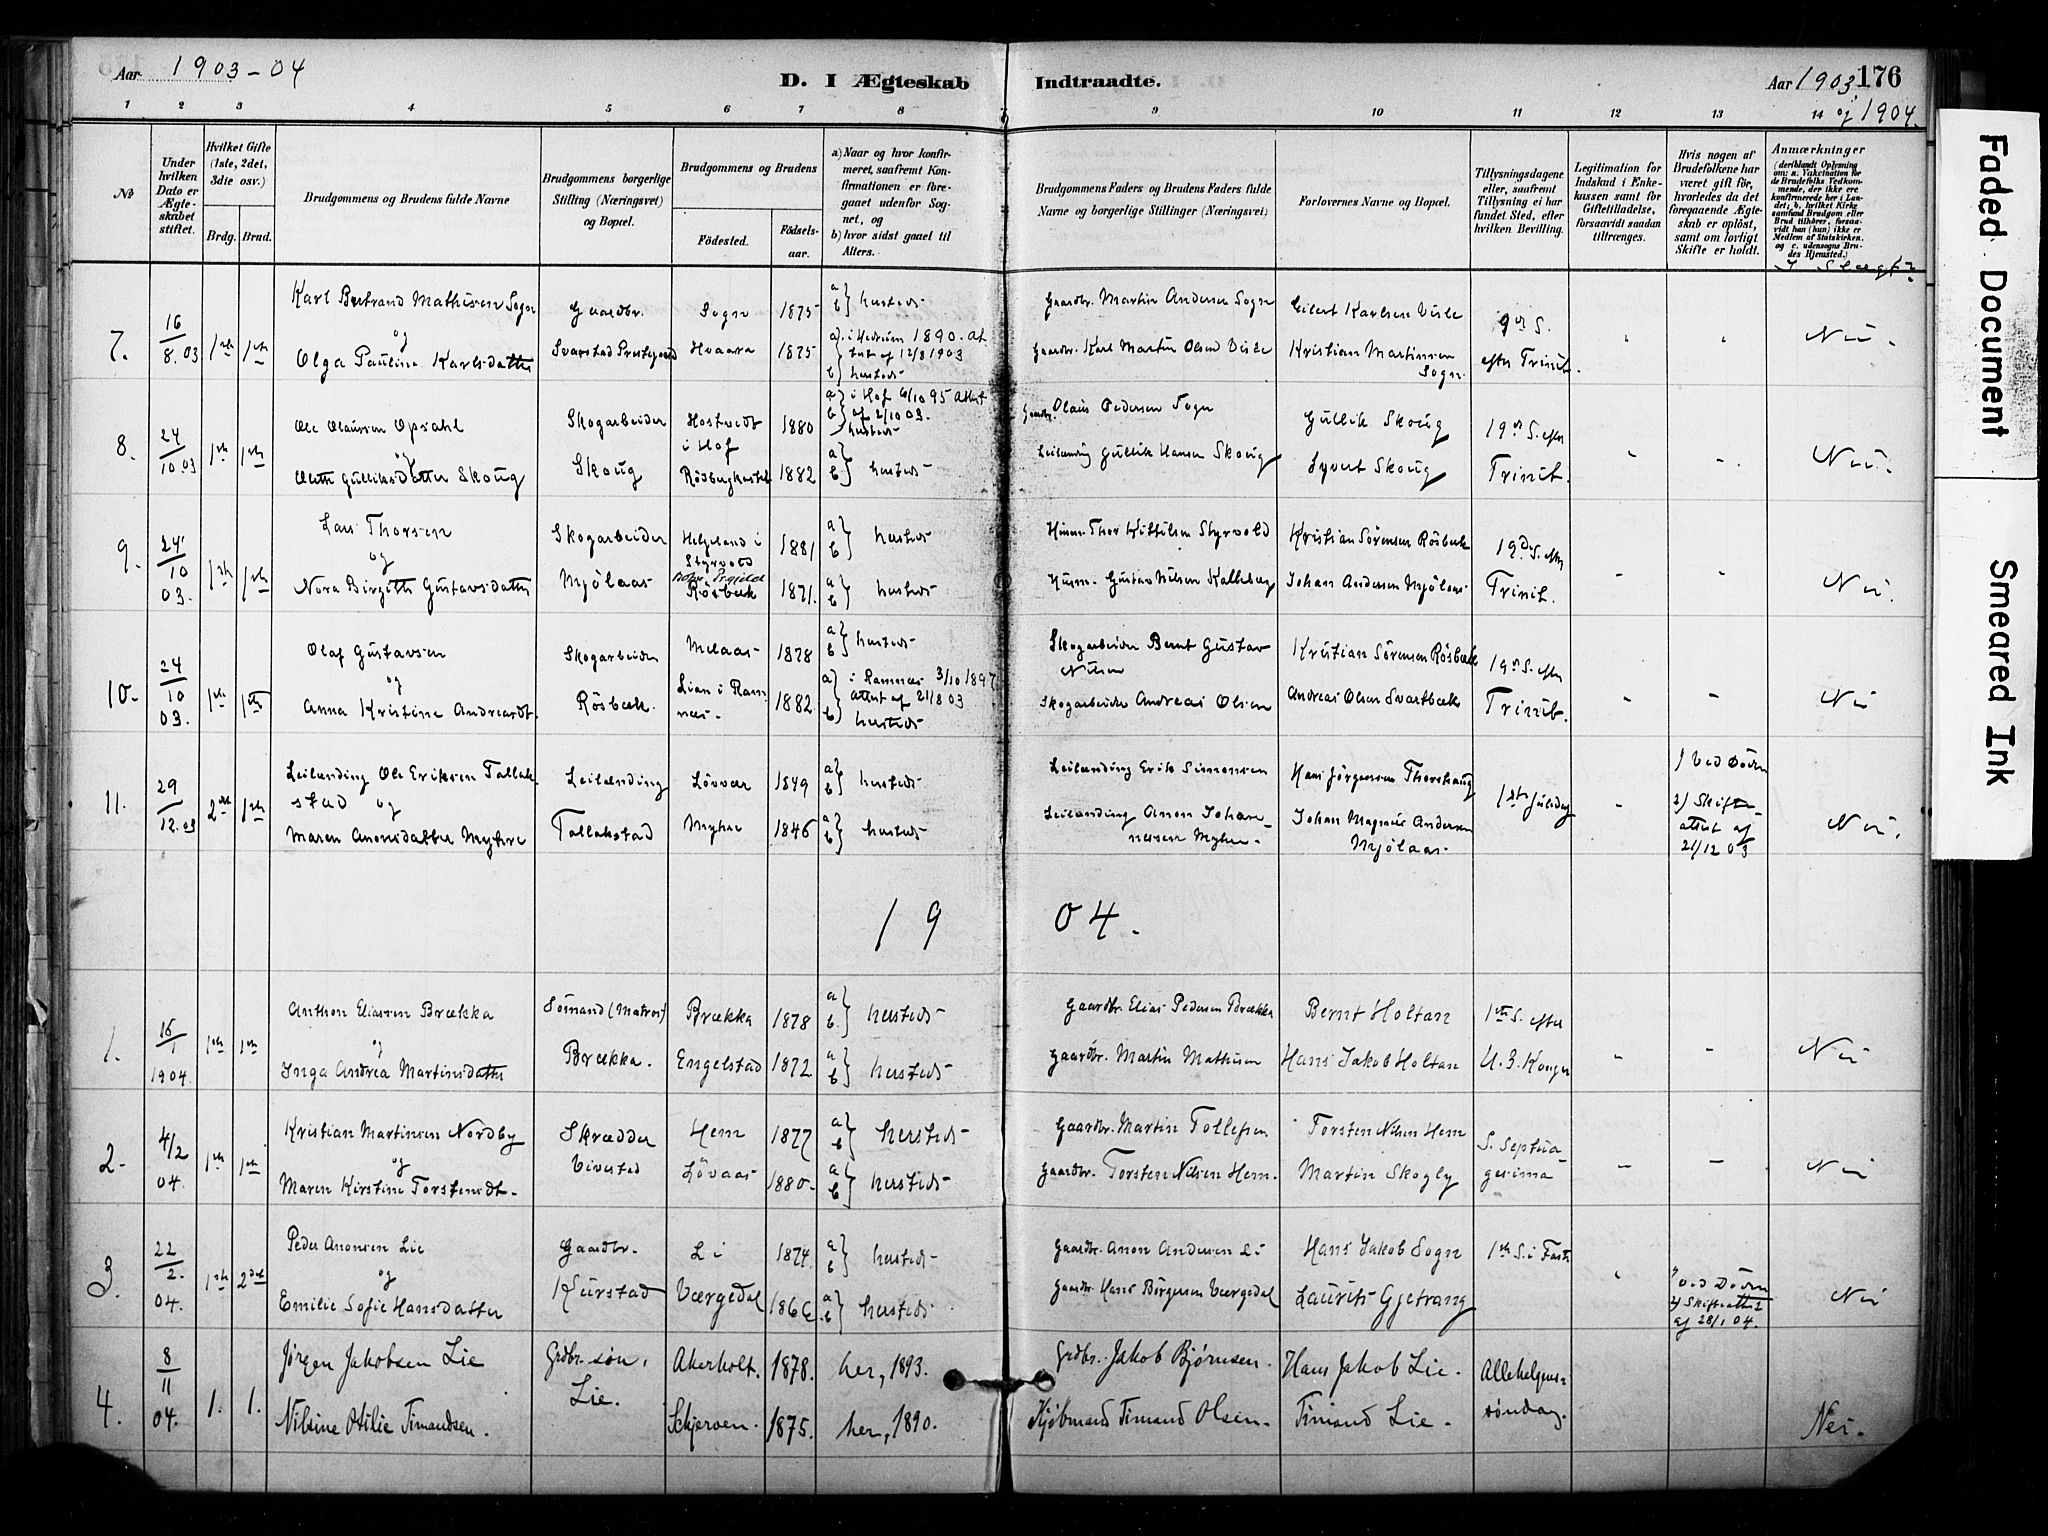 Aar 1903-04
D. I Ægteskab Indtraadte.
Aar 1903 176
og 1904.
1 2 3 4 5 6 7 8 9 10 11 12 13 14
№
Under hvilken Dato er Ægteskabet stiftet.
Hvilket Gifte (1ste, 2det, 3die osv.)
Brdg. Brud.
Brudgommens og Brudens fulde Navne
Brudgommens borgerlige Stilling (Næringsvei) og Bopæl.
Brudgommens og Brudens
Fødested.
Fødselsaar.
a) Naar og hvor konfirmeret, saafremt Konfirmationen er foregaaet udenfor Sognet, og
b) hvor sidst gaaet til Alters.
Brudgommens Faders og Brudens Faders fulde Navne og borgerlige Stillinger (Næringsvei)
Forlovernes Navne og Bopæl.
Tillysningsdagene eller, saafremt Tillysning ei har fundet Sted, efter hvilken Bevilling.
Legitimation for Indskud i Enkekassen samt for Giftetilladelse, forsaavidt saadan tiltrænges.
Hvis nogen af Brudefolkene har været gift før, hvorledes da det foregaaende Ægteskab er opløst, samt om lovligt Skifte er holdt.
Anmærkninger
(deriblandt Oplysning om: a. Vakcination for de Brudefolks Vedkommende, der ikke ere konfirmerede her i Landet; b. hvilket Kirkesamfund Brudgom eller Brud tilhører, forsaavidt han (hun) ikke er Medlem af Statskirken, og c. udensogns Brudes Hjemsted.)
I Slægt?
7. 16/8.03 1ste 1ste
Karl Bertrand Mathisen Sogn
og
Olga Pauline Karlsdatter
Gaardbr.
Svarstad Prestegaard
Sogn 1875 a b} hersteds
Hvaara 1875 a) i Hedrum 1890. At
test af 12/8 1903
b) hersteds
Gaardbr. Martin Andersen Sogn
Gaardbr. Karl Martin Olsen Visle
Eilert Karlsen Visle
Kristian Martinsen Sogn.
9de S.
efter Trinit.
Nei.
8. 24/10.03 1ste 1ste
Ole Olaussen Opsahl
og
Gulliksdatter Skoug
Skogarbeider
Skoug
Hostvedt i Hof 1880
a) i Hof 6/10 95 Attest
b) af 2/10 03.
hersteds
1882 a b} hersteds
Gaardbr. Olaus Pedersen Sogn
Leilænding Gullik Hansen Skoug
Gullik Skoug
Syvert Skoug
19de S. efter
Trinit.
Nei.
9. 24/10 03. 1ste 1ste
Lars Thorsen
og
Nora Birgitte Gustavsdatter
Skogarbeider
Mjölaas
Helgeland i Styrvold 1881 a b} hersteds
Rösbæk 1871. a b} hersteds
Husm. Thor Kittilsen Styrvold
Husm. Gustav Nilsen Kalleberg
Kristian Sörensen Rösbæk
Johan Andersen Mjölaas
19de S. efter
Trinit.
Nei.
10. 24/10 03. 1ste 1ste
Olaf Gustavsen
og
Anna Kristine Andreasdt.
Skogarbeider
Rösbæk.
Melaas 1878 a b} hersteds
Lian i Ramnæs. 1882
a) i Ramnæs 3/10 1897
attest af 21/8 03
b) hersteds
Skogarbeider Bernt Gustav Nilsen
Skogarbeider Andreas Olsen
Kristian Sörensen Rösbæk
Andreas Olsen Svartbæk
19de S. efter
Trinit.
Nei
11. 29/12.03 2det 1ste
Leilænding Ole Eriksen Tallakstad
og
Maren Anonsdatter Myhre
Leilænding
Tallakstad
Lövaas 1849 a b} hersteds
Myhre 1846 a b} hersteds
Leilænding Erik Simonsen
Leilænding Anon Johannessen Myhre.
Hans Jörgensen Thorshaug
Johan Magnus Andersen Mjölaas.
1ste Juledag
1) Ved Döden
2) Skifteattest af 21/12 03
Nei.
1904.
1. 16/1 1904 1ste 1ste
Anthon Eliassen Brække
og
Inga Andrea Martinsdatter
Sömand (Matros)
Brækka.
Brækka 1878 a b} hersteds
Engelstad 1872 a b} hersteds
Gaardbr. Elias Pedersen Brækka
Gaardbr. Martin Mathisen
Bernt Holtan
Hans Jakob Holtan
1ste S. efter
H. 3. Konger
Nei
2. 4/2 04. 1ste 1ste
Kristian Martinsen Nordby
og
Maren Kirstine Torstensdt.
Skrædder
Vivestad
Hem 1877 a b} hersteds
Lövaas 1880. a b} hersteds
Gaardbr. Martin Tollefsen
Gaardbr. Torsten Nilsen Hem.
Torsten Nilsen Hem
Martin Skogly
S. Septuagesima
Nei
3. 22/2. 04. 1ste 2det
Peder Anonsen Lie
og
Emilie Sofie Hansdatter
Gaardbr.
Kurstad
Li 1874. a b} hersteds
Værgedal 1866. a b} hersteds
Gaardbr. Anon Andersen Li
Gaardbr. Hans Börgersen Værgedal
Hans Jakob Sogn
Laurits Gjetrang
1ste S. i Faste
1) Ved Döden
2) Skifteattest
af 28/1 04.
Nei
4. 8/11 04. 1. 1.
Jørgen Jakobsen Lie
Nilsine Otilie Timandsen.
Grdbr. søn.
Lie.
Akerholt. 1878. her, 1893.
Skjerven. 1875. her, 1890.
Grdbr. Jakob Bjørnsen.
Kjøbmand Timand Olsen.
Hans Jakob Lie.
Timand Lie.
Allehelgens-
søndag.
Nei.
Faded Document
Smeared Ink